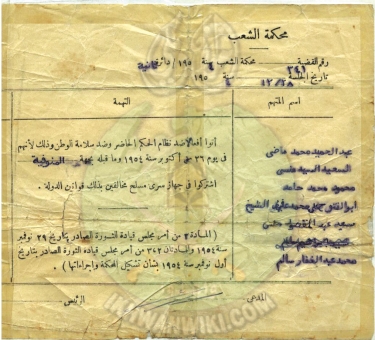 محكمة الشعب
رقم القضية ٣٤١ محكمة الشعب سنة ١٩٥٤ / دائرة ثانية
تاريخ الجلسة ١٢/٢٨ سنة ١٩٥٤
اسم المتهم
التهمة
عبد الحميد محمد ماضى
السعيد السيد
محمود محمد حامد
ابو الفتوح محمد الشيخ
سعيد عبد
محمد عبد الغفار سالم
أتوا أفعالا ضد نظام الحكم الحاضر وضد سلامة الوطن وذلك لأنهم
فى يوم ٢٦ من أكتوبر سنة ١٩٥٤ وما قبله بجهة المنوفية
اشتركوا فى جهاز سرى مسلح مخالفين بذلك قوانين الدولة .
( المادة ٣ من أمر مجلس قيادة الثورة الصادر بتاريخ ٢٩ نوفمبر
سنة ١٩٥٤ والمادتان ٢ و ٣ من أمر مجلس قيادة الثورة الصادر بتاريخ
أول نوفمبر سنة ١٩٥٤ بشأن تشكيل المحكمة وإجراءاتها ) .
المدعى
الرئيس
IKHWANWIKI.COM